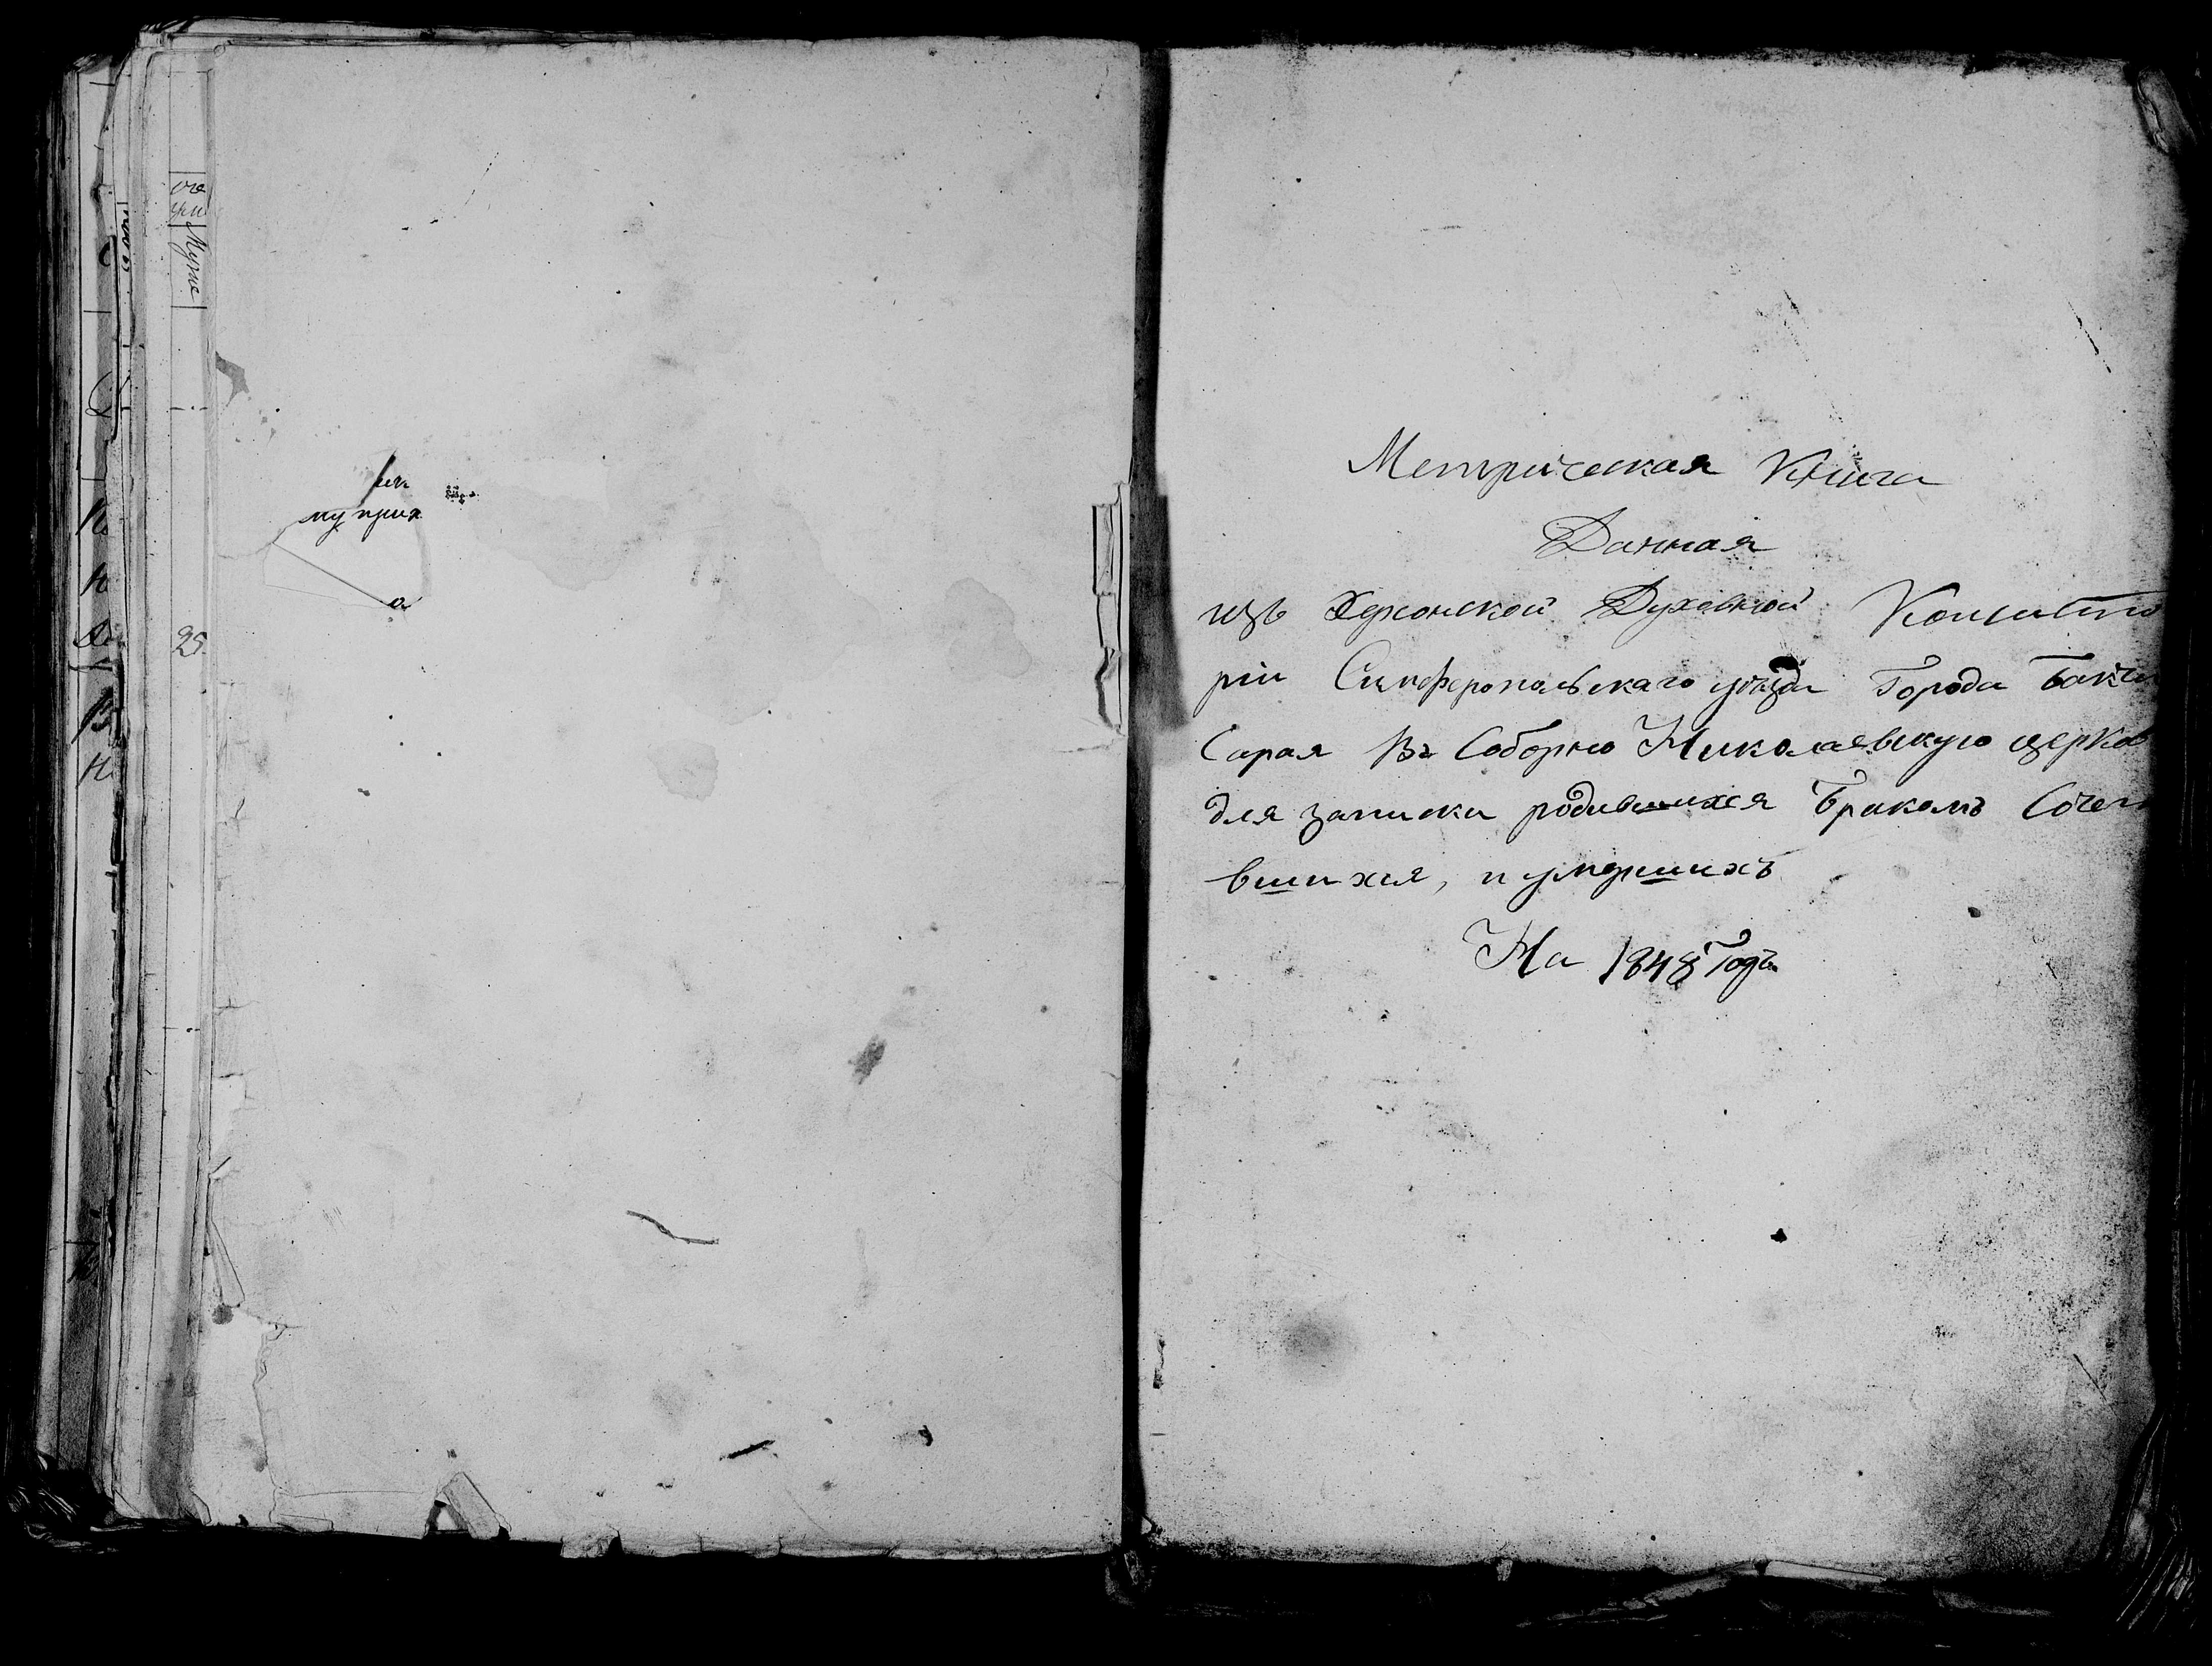 Метрическая Книга
Данная
изъ Херсонской Духовной Консисто
ріи Симферопольскаго уѣзда Города Бакчи
Сарая Въ Соборню Николаевскую церков
для записки родившихся Бракомъ Сочета
вшихся, и умершихъ
На 1848 Годъ
25